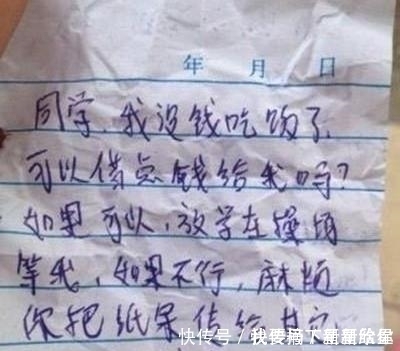 年 月 日
同学,我没钱吃饭了,
可以借点钱给我吗?
如果可以,放学在操场
等我,如果不行,麻烦
你把纸条传给其它
快传号/我要摘下